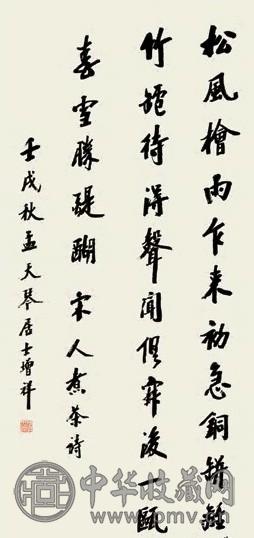 松風檜雨乍来初急銅缾離
竹罏待得聲聞俱寂後一甌
春雪勝醍醐 宋人煮茶詩
壬戌秋孟天琴居士增祥
中华收藏网